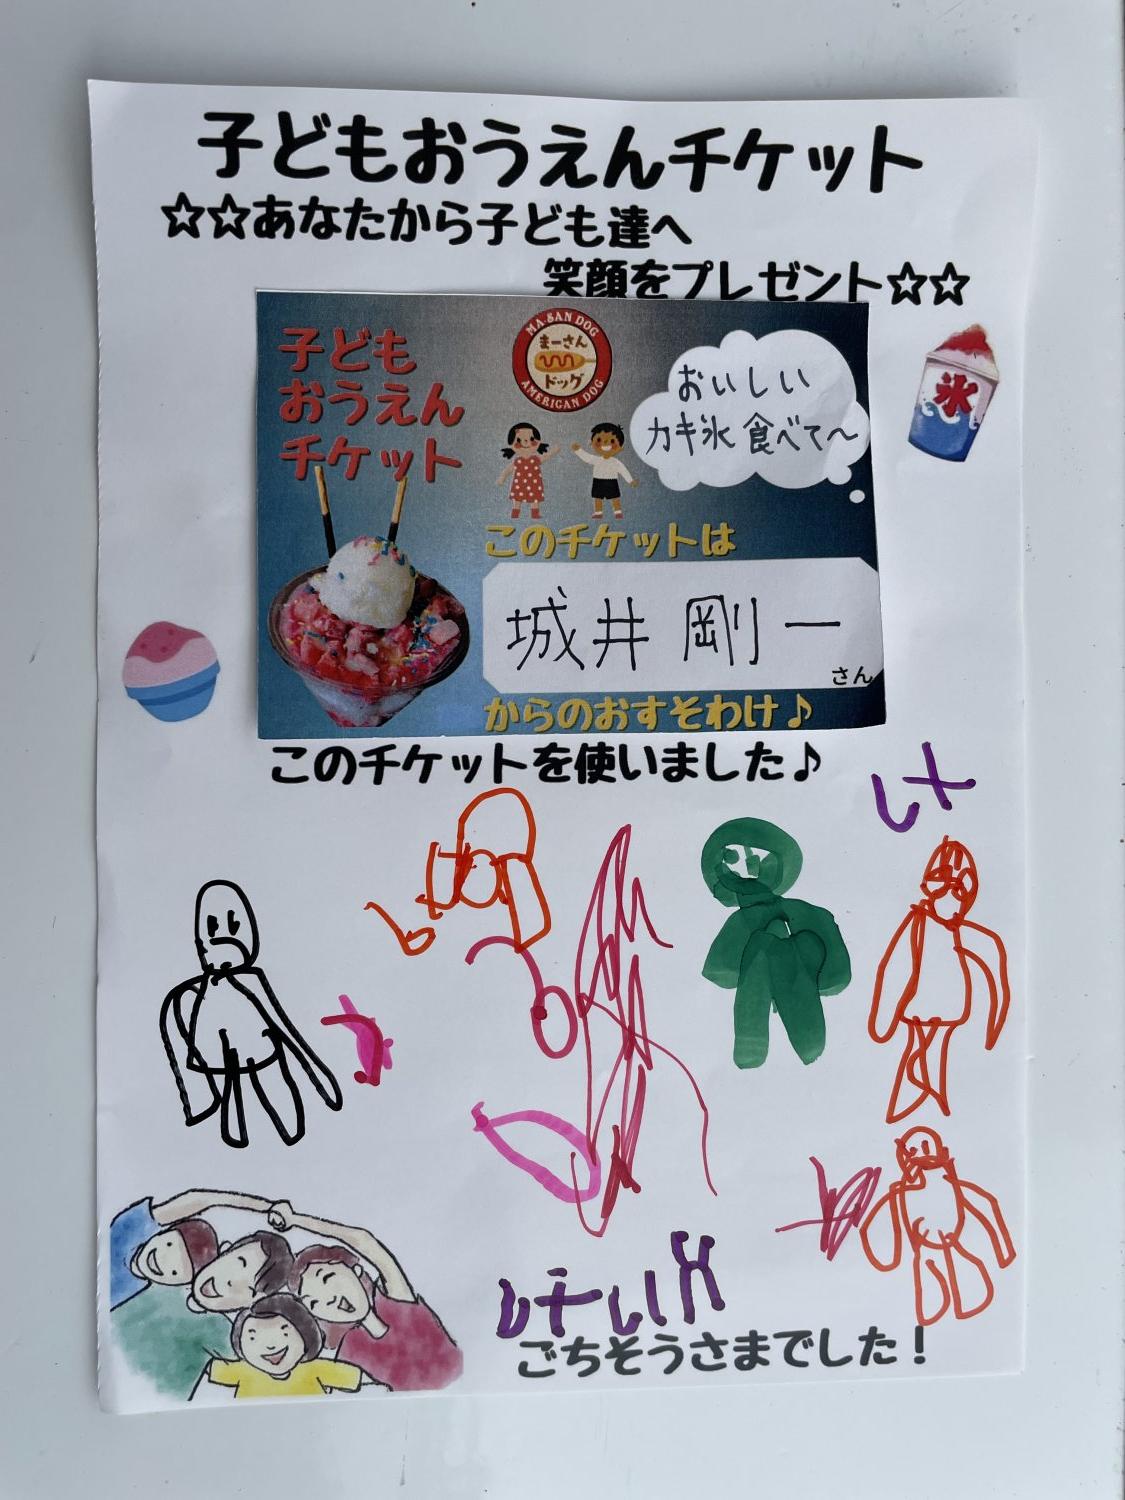 子どもおうえんチケット
☆☆あなたから子ども達へ
笑顔をプレゼント☆☆
子ども
おうえん
チケット
MA-SAN DOG
まーさん
ドッグ
AMERICAN DOG
おいしい
カキ氷 食べて～
氷
このチケットは
城井 剛一
さん
からのおすそわけ♪
このチケットを使いました♪
ごちそうさまでした！